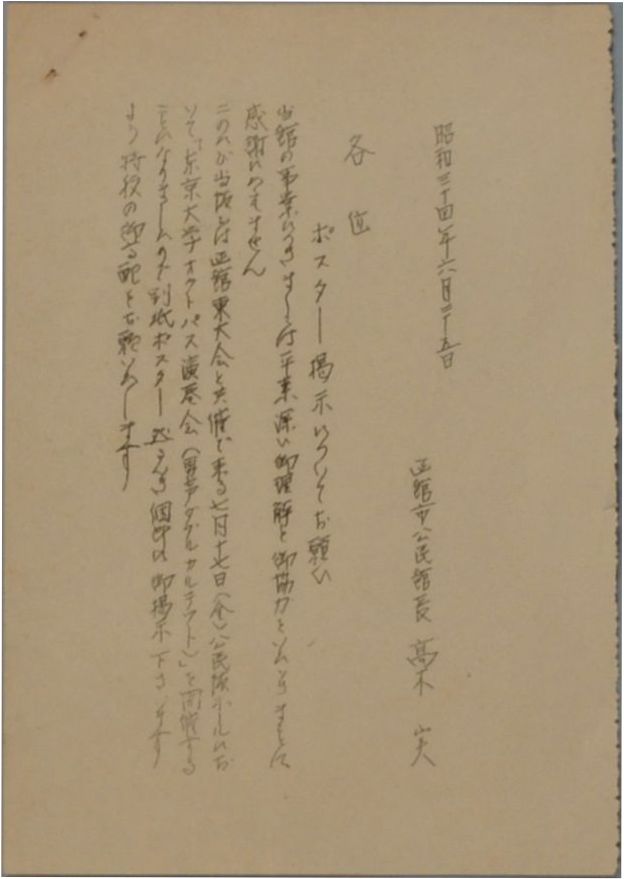 昭和三十四年六月二十五日
函館市公民館長 高木
各位
ポスター掲示についてお願い
当館の事業につきましては平素深い御理解と御協力を
感謝にたえません
このたび当館では函館東大会と共催で来る七月十七日(金)公民館ホールにお
いて「東京大学オクトパス演奏会(男声ダブルカルテット)」を開催する
ことになりましたので別紙ポスター 御掲示下さいます
よう特段の御高配をお願いいたします